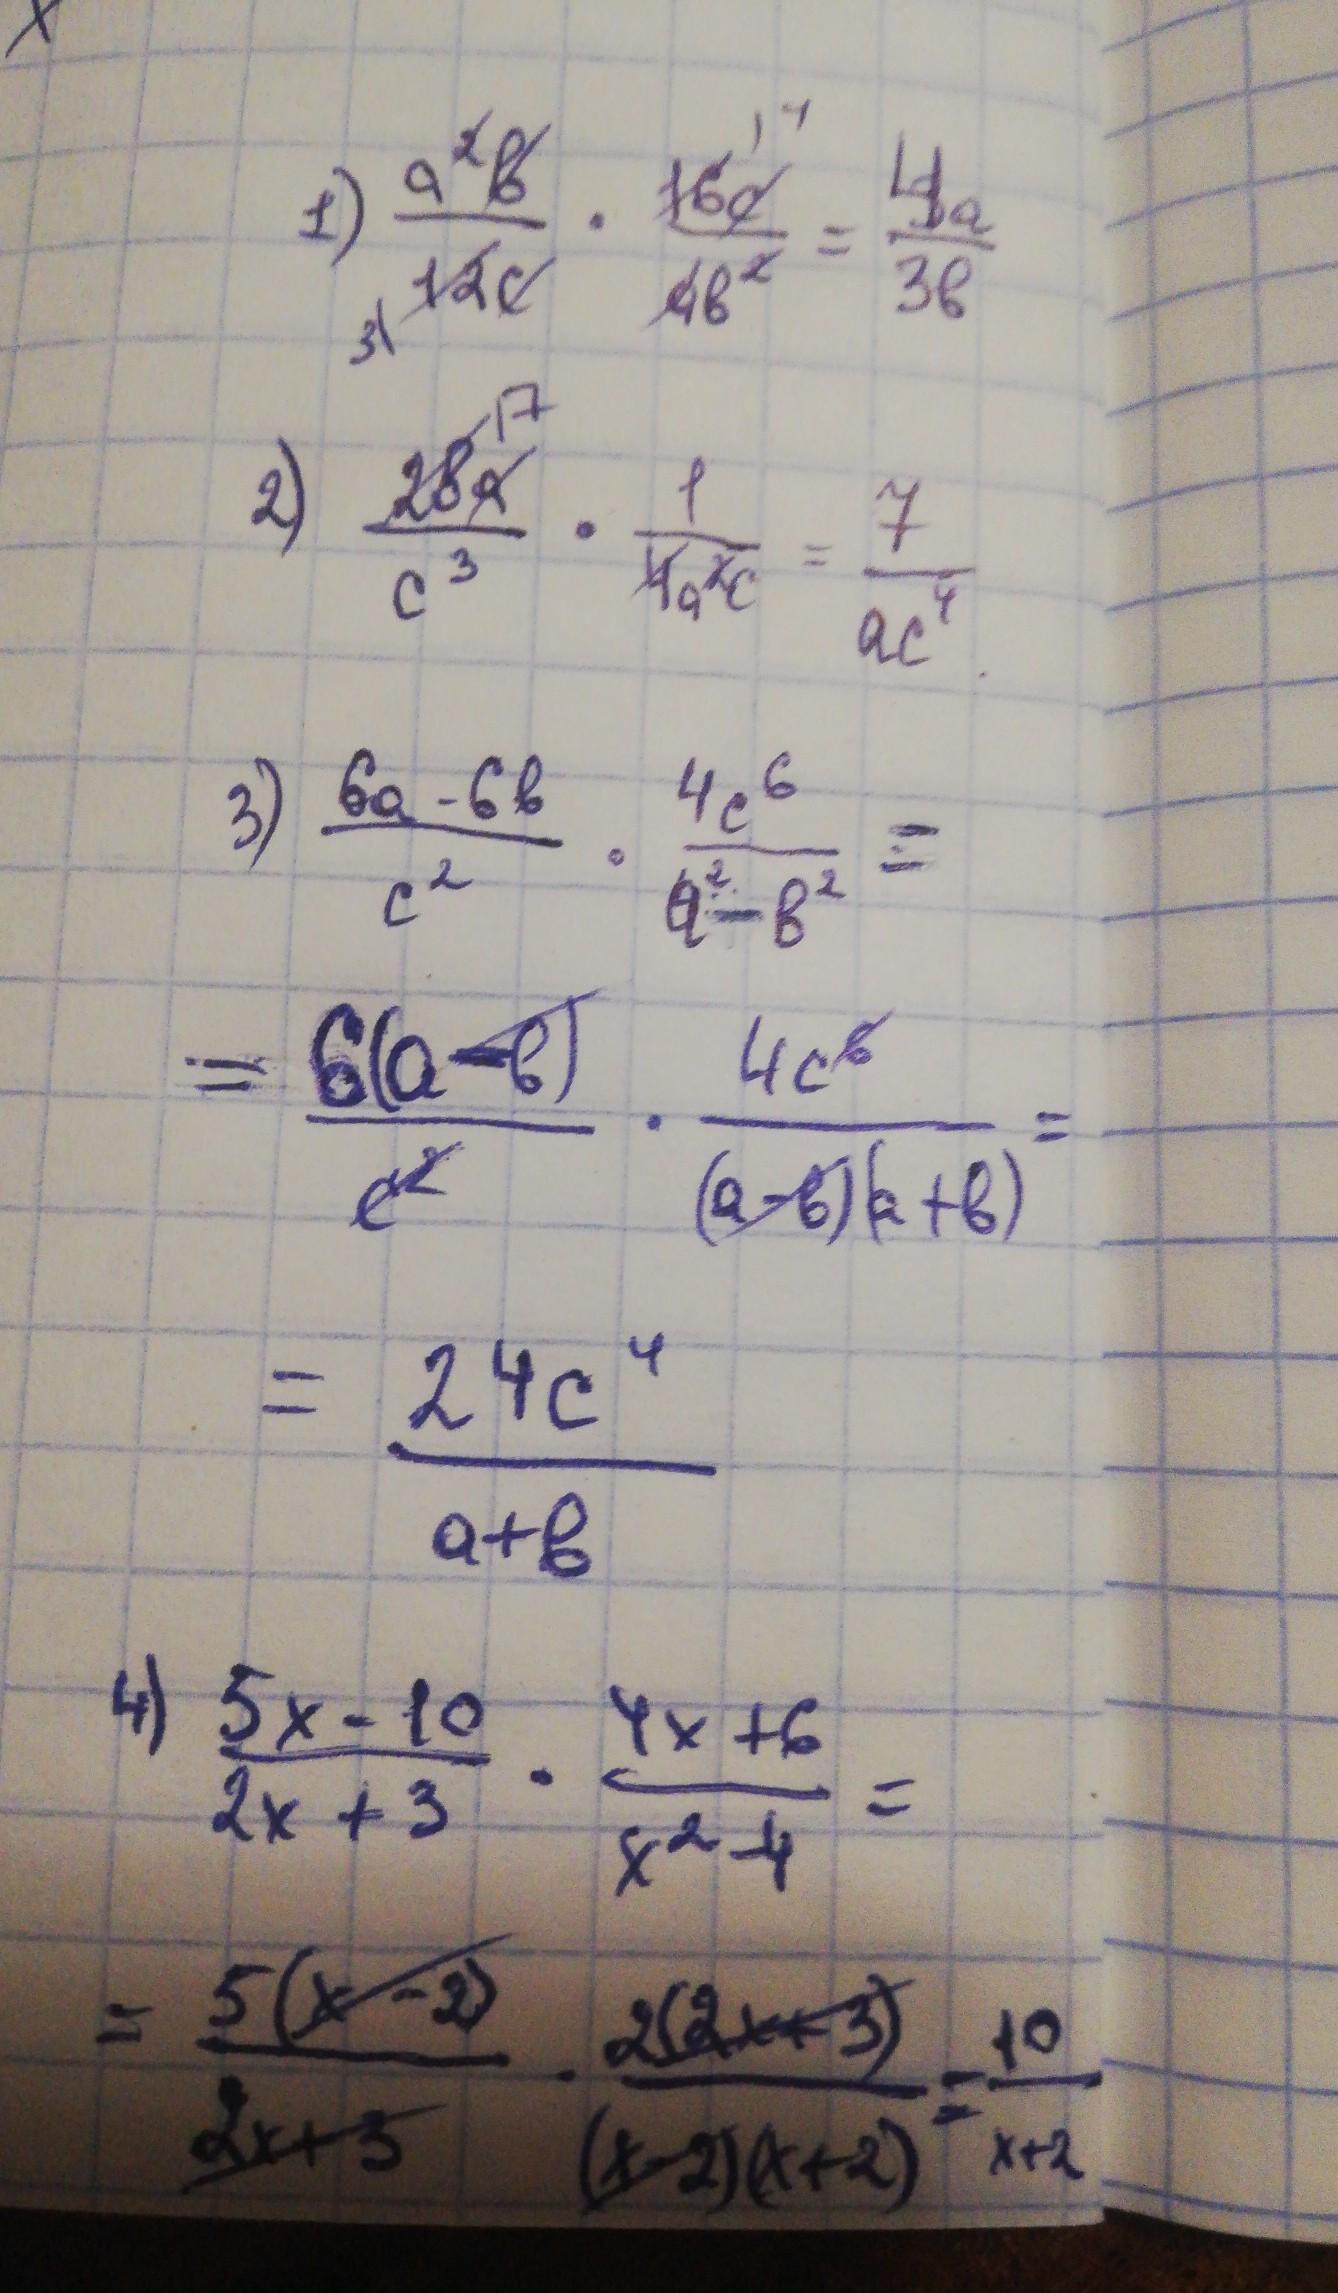 x
1) a²b/12c · 16c/4b² = 4a/3b
3 1 1 4
2) 28a/c³ · 1/4a²c = 7/ac⁴
17
3) 6a-6b/c² · 4c⁶/a²-b² =
= 6(a-b)/c² · 4c⁶/(a-b)(a+b) =
= 24c⁴/a+b
4) 5x-10/2x+3 · 4x+6/x²-4 =
= 5(x-2)/2x+3 · 2(2x+3)/(x-2)(x+2) = 10/x+2